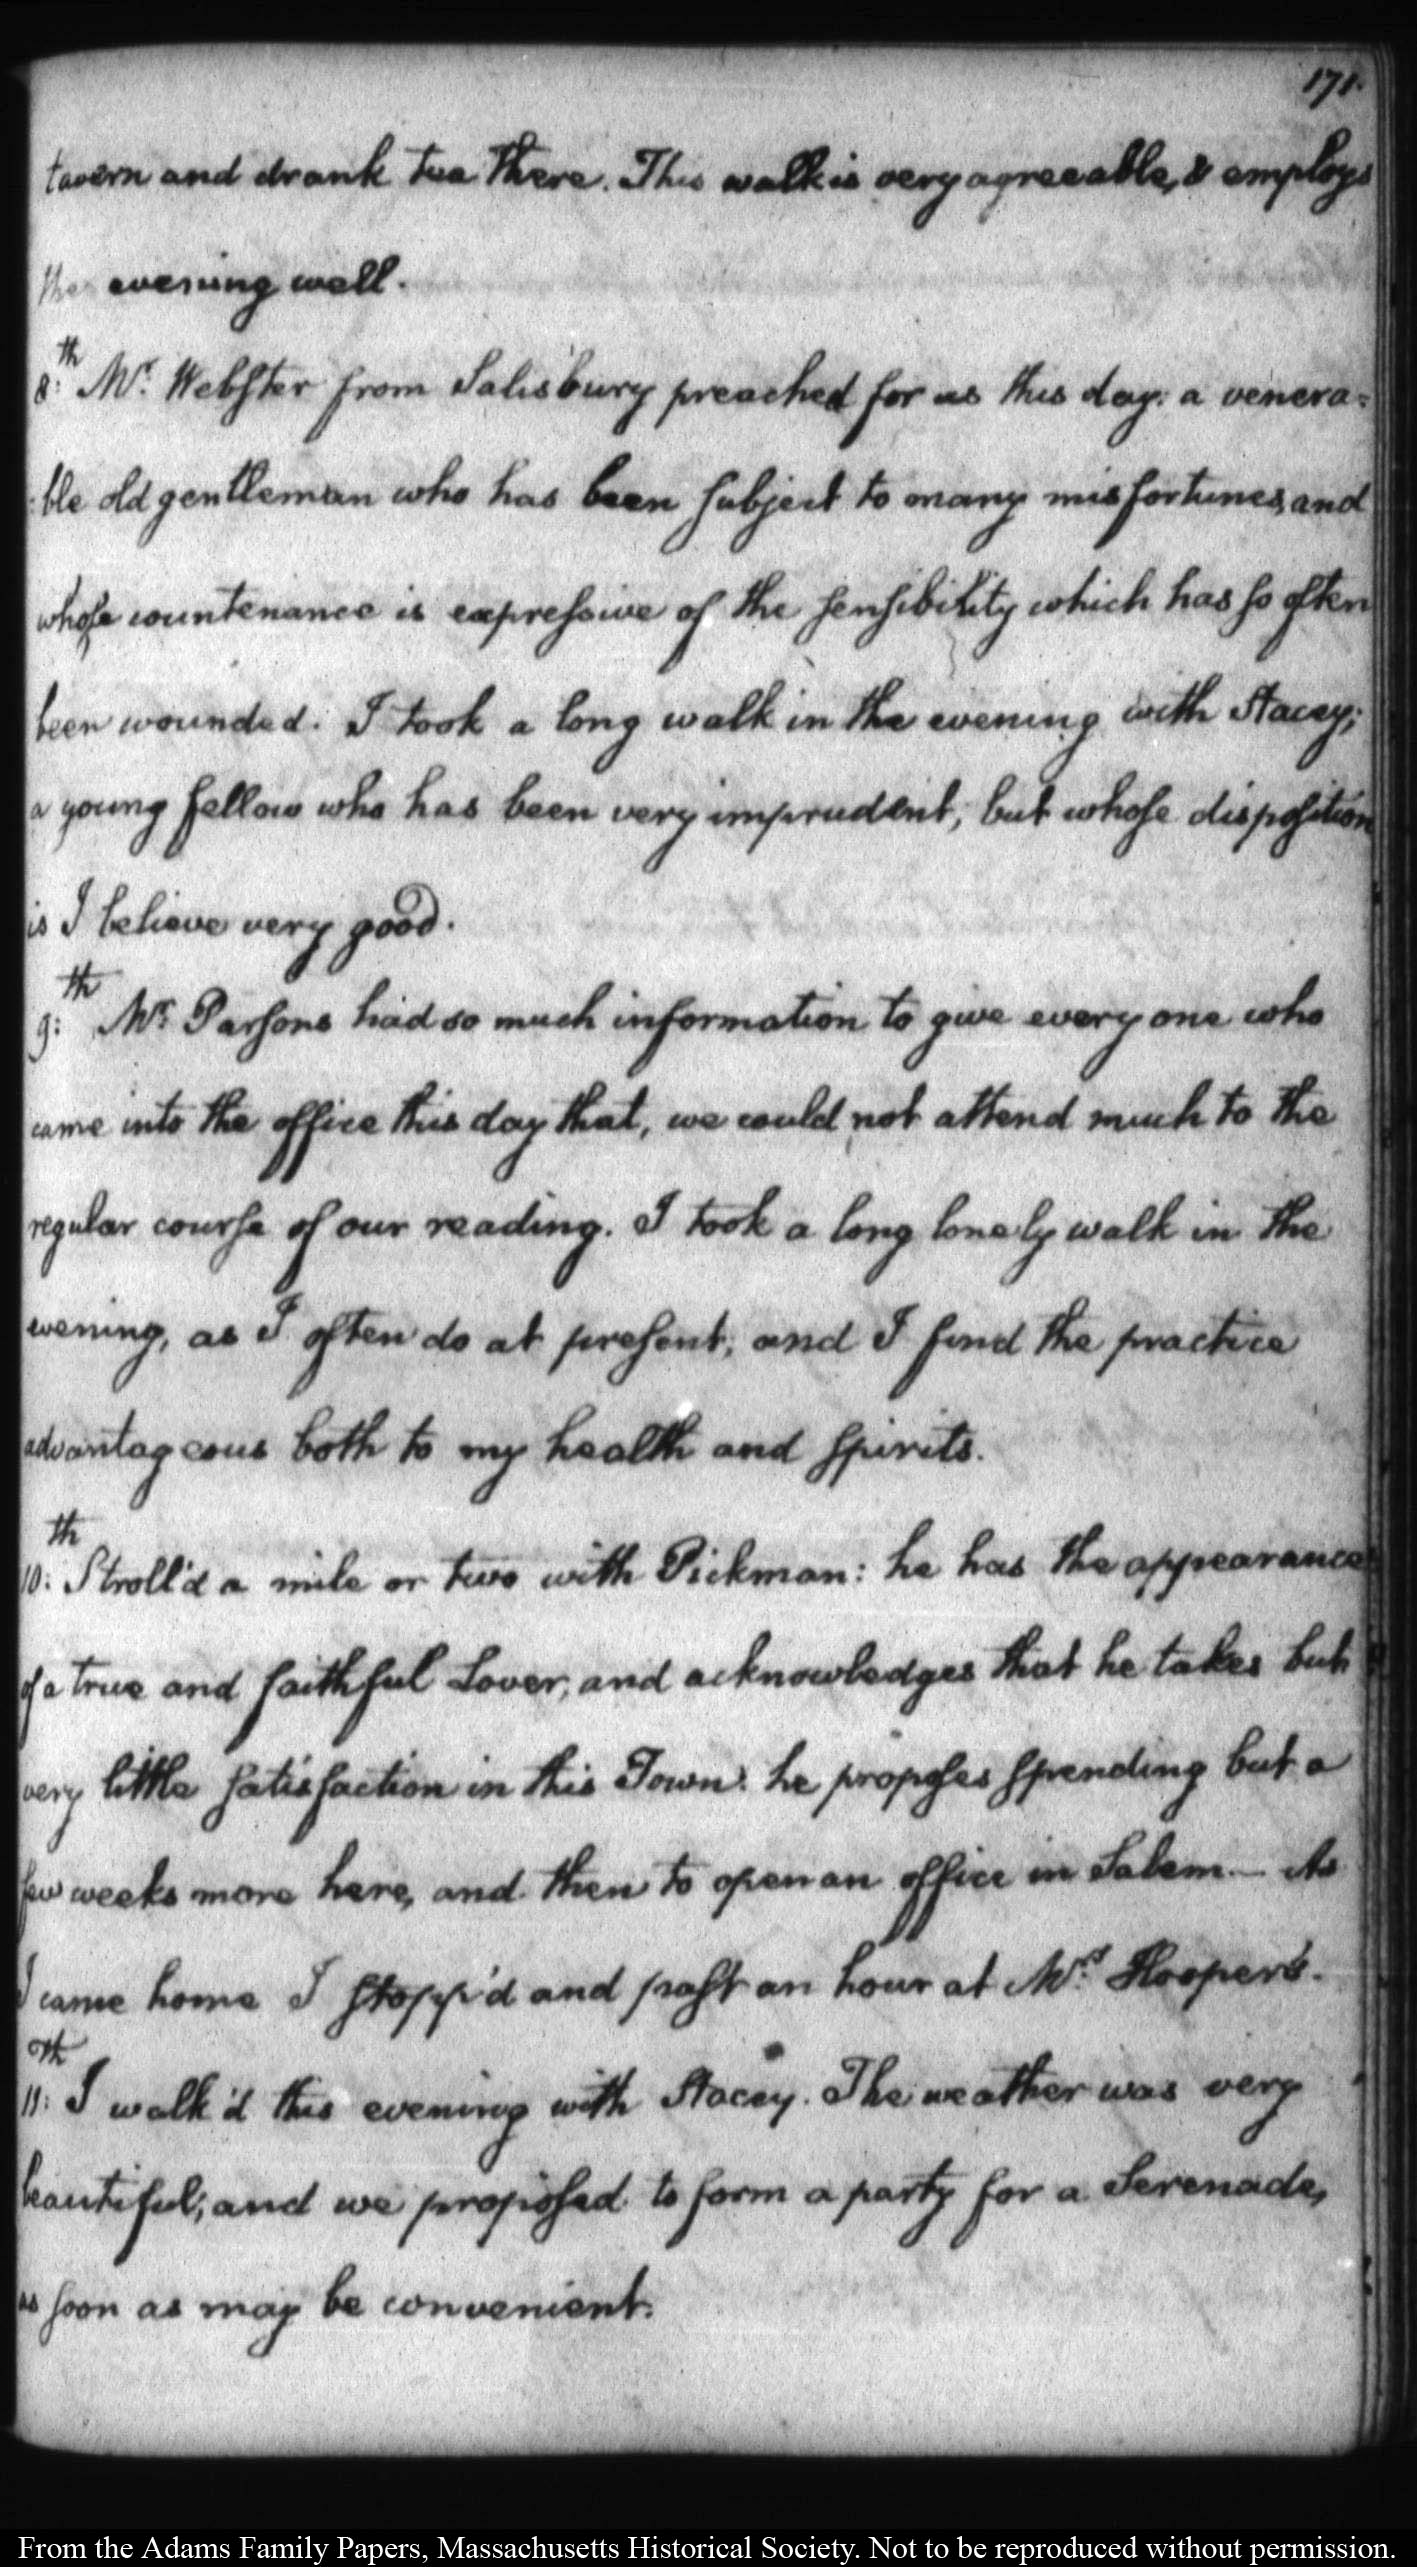 171.
tavern and drank tea there. This walk is very agreeable, & employs
the evening well.
8:th Mr. Webster from Salisbury preached for us this day: a venera=
:ble old gentleman who has been subject to many misfortunes, and
whose countenance is expressive of the sensibility which has so often
been wounded. I took a long walk in the evening with Stacey;
a young fellow who has been very imprudent, but whose disposition
is I believe very good.
9:th Mr. Parsons had so much information to give every one who
came into the office this day that, we could not attend much to the
regular course of our reading. I took a long lonely walk in the
evening, as I often do at present; and I find the practice
advantageous both to my health and spirits.
10:th Stroll'd a mile or two with Pickman: he has the appearance
of a true and faithful Lover, and acknowledges that he takes but
very little satisfaction in this Town: he proposes spending but a
few weeks more here, and then to open an office in Salem.— As
I came home I stopp'd and past an hour at Mrs. Hooper's.
11:th I walk'd this evening with Stacey. The weather was very
beautiful; and we proposed to form a party for a Serenade,
as soon as may be convenient.
From the Adams Family Papers, Massachusetts Historical Society. Not to be reproduced without permission.